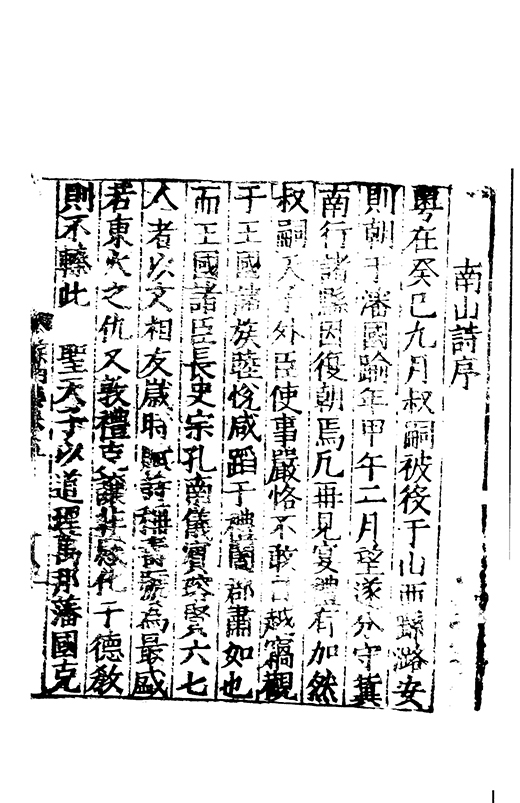 南山詩序
粵在癸巳九月叔嗣被役于山西歸潞安
則朝于瀋國踰年甲午二月望遂分守冀
南行諸縣因復朝焉凡再見宴禮有加然
叔嗣天子外臣使事嚴恪不敢 越竊觀
于王國諸族睦悅咸蹈于禮閤郡肅如也
而王國諸臣長史宗孔南儀賓 賢六七
人者以文相友歲時賦詩 詩 為最盛
若東 之仇又敦禮克讓 化于德教
則不 此 聖天子以道理萬邦藩國克